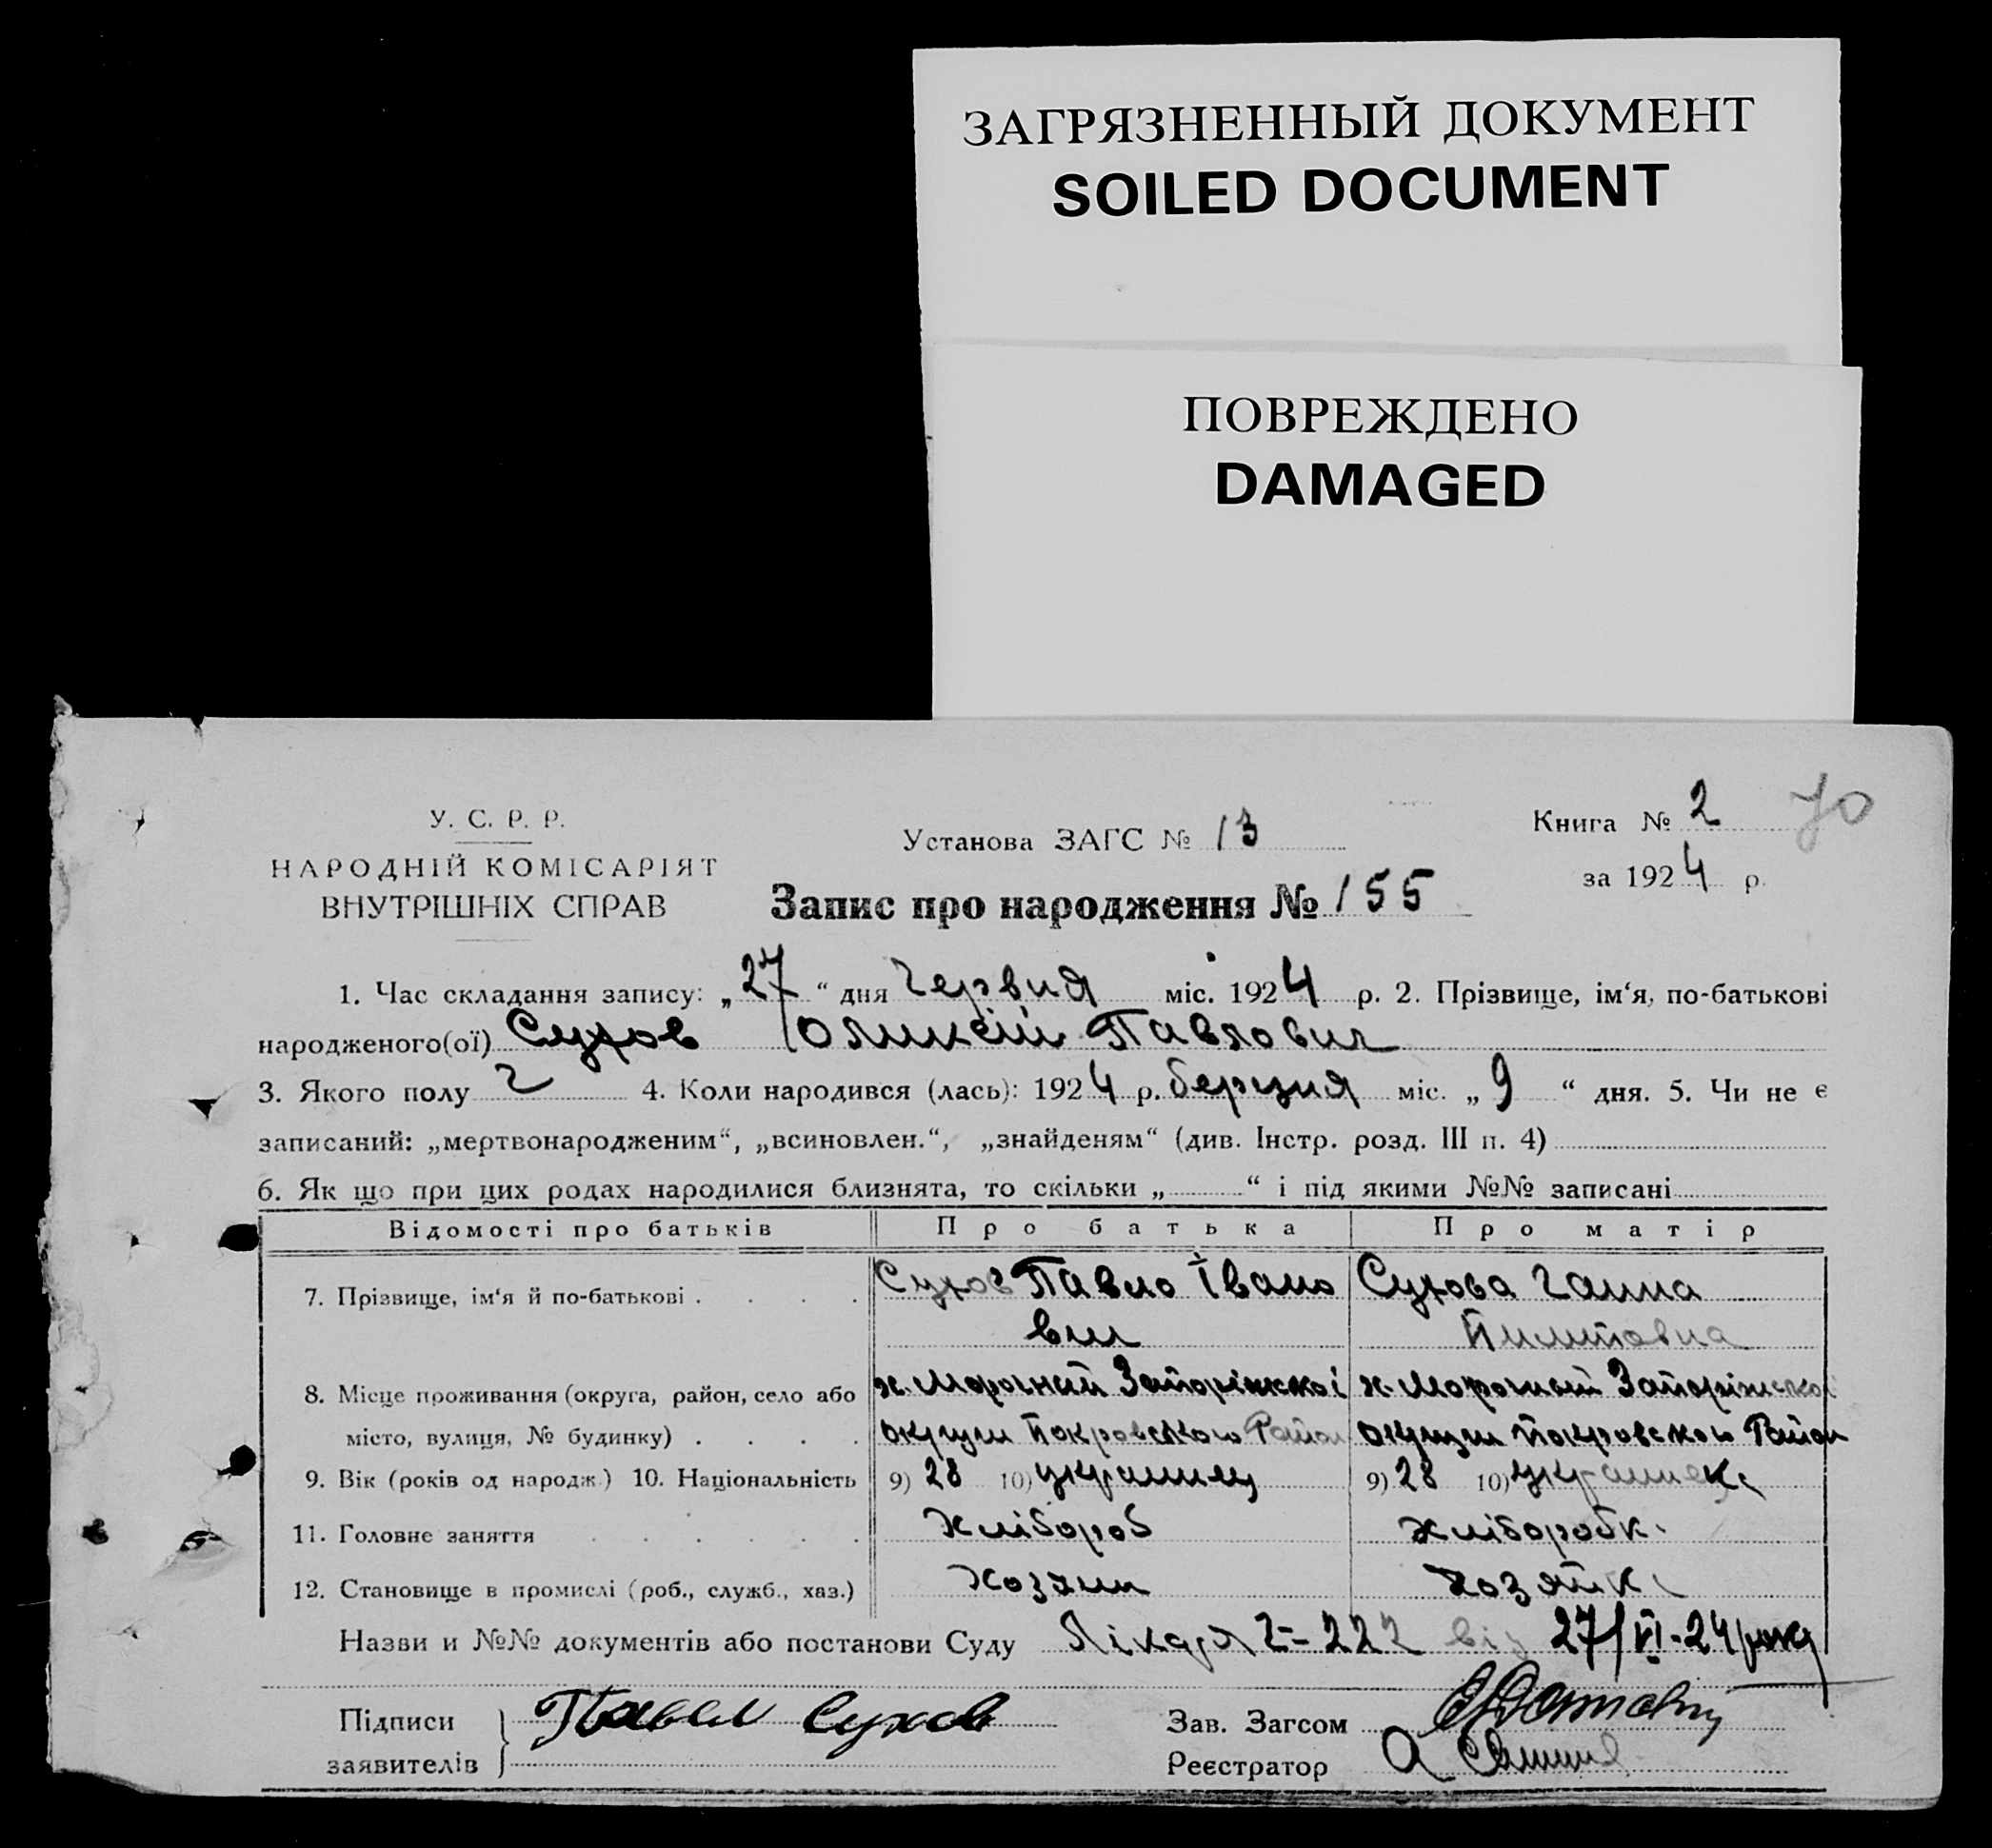 ЗАГРЯЗНЕННЫЙ ДОКУМЕНТ
SOILED DOCUMENT
ПОВРЕЖДЕНО
DAMAGED
70
У. С. Р. Р.
НАРОДНІЙ КОМІСАРІЯТ
ВНУТРІШНІХ СПРАВ
Установа ЗАГС № 13
Книга № 2
за 1924 р.
Запис про народження № 155
1. Час складання запису: „27“ дня Червня міс. 1924 р. 2. Прізвище, ім‘я, по-батькові
народженого(ої) Сухов Павлович
3. Якого полу Ч 4. Коли народився (лась): 1924 р. березня міс. „9“ дня. 5. Чи не є
записаний: „мертвонародженим“, „всиновлен.“, „знайденям“ (див. Інстр. розд. III п. 4)
6. Як що при цих родах народилися близнята, то скільки „ “ і під якими №№ записані
Відомості про батьків Про батька Про матір
7. Прізвище, ім‘я й по-батькові . . . . Сухов Павло Івано Сухова Ганна
вич
8. Місце проживання (округа, район, село або х. Запоріжскої х. Запоріжскої
місто, вулиця, № будинку) . . . . округи Покровского Район округи Покровского Район
9. Вік (років од народж.) 10. Національність 9) 28 10) українец 9) 28 10) українка
11. Головне заняття . . . . . . Хлібороб хліборобка
12. Становище в промислі (роб., служб., хаз.) Хозяин хозяйка
Назви и №№ документів або постанови Суду Лікаря Ч-222 від 27/VI-24 року
Підписи
заявителів
Павел Сухов
Зав. Загсом
Реєстратор